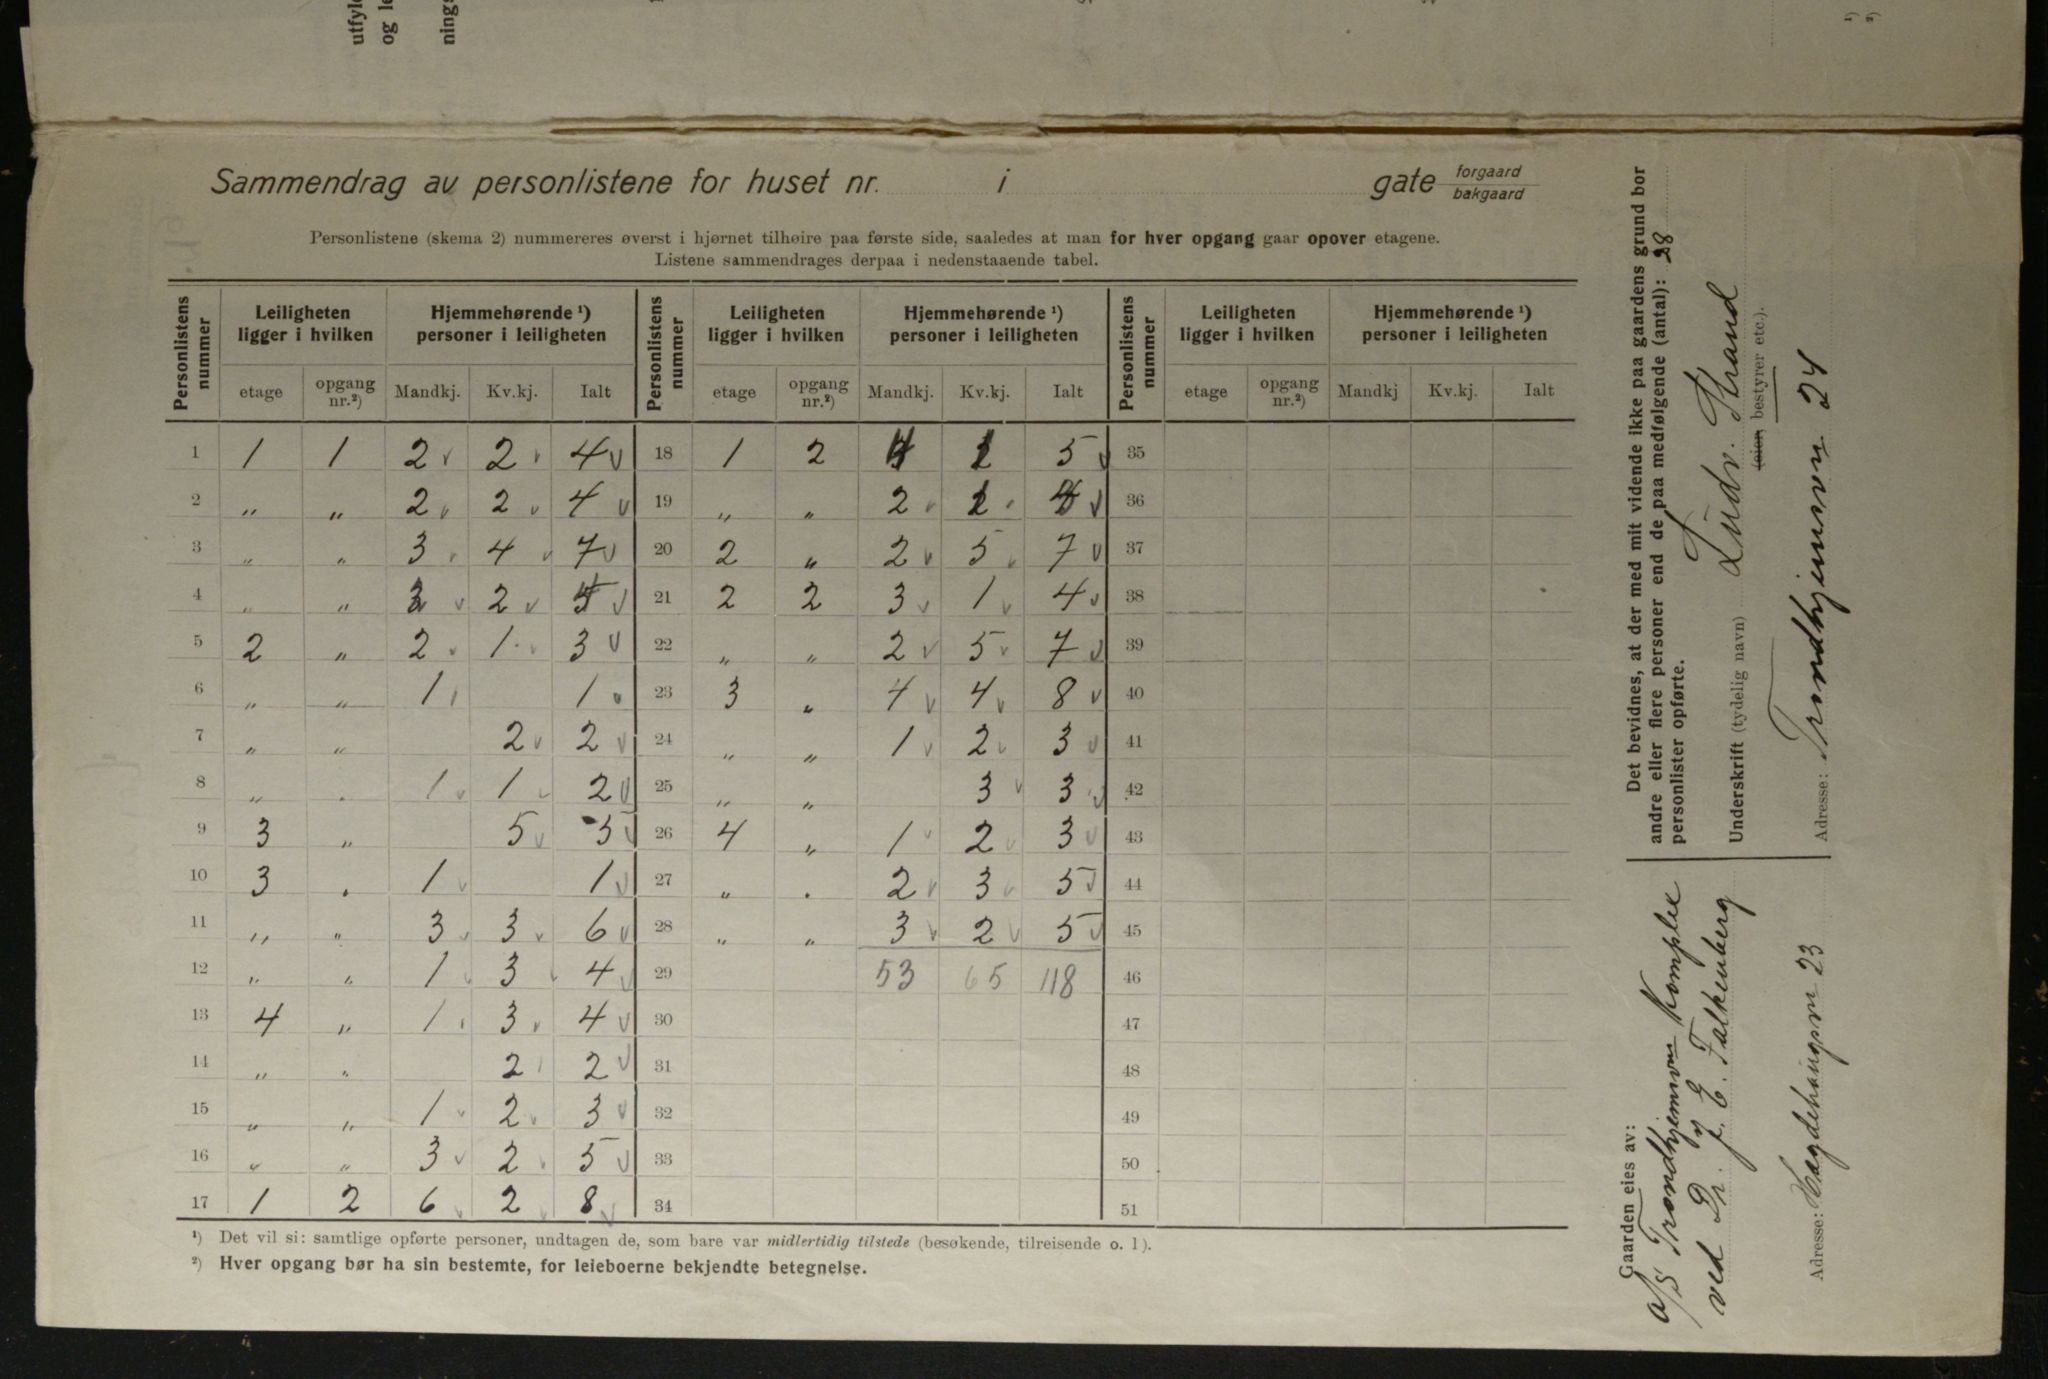 utfyl
og le
nings
1)
2)
Sammendrag av personlistene for huset nr. i gate forgaard
bakgaard
Personlistene (skema 2) nummereres øverst i hjørnet tilhøire paa første side, saaledes at man for hver opgang gaar opover etagene.
Listene sammendrages derpaa i nedenstaaende tabel.
Personlistens nummer | Leiligheten ligger i hvilken | Hjemmehørende 1) personer i leiligheten | Personlistens nummer | Leiligheten ligger i hvilken | Hjemmehørende 1) personer i leiligheten | Personlistens nummer | Leiligheten ligger i hvilken | Hjemmehørende 1) personer i leiligheten
etage | opgang nr.2) | Mandkj. | Kv.kj. | Ialt | etage | opgang nr.2) | Mandkj. | Kv.kj. | Ialt | etage | opgang nr.2) | Mandkj | Kv.kj. | Ialt
1 1 1 2 2 4 18 1 2 5 35
2 " " 2 2 4 19 " " 2 36
3 " " 3 4 7 20 2 " 2 5 7 37
4 " " 2 21 2 2 3 1 4 38
5 2 " 2 1 3 22 " " 2 5 7 39
6 " " 1 1 23 3 " 4 4 8 40
7 " " 2 2 24 " " 1 2 3 41
8 " " 1 1 2 25 " " 3 3 42
9 3 " 5 5 26 4 " 1 2 3 43
10 3 " 1 1 27 " " 2 3 5 44
11 " " 3 3 6 28 " " 3 2 5 45
12 " " 1 3 4 29 53 65 118 46
13 4 " 1 3 4 30 47
14 " " 2 2 31 48
15 " " 1 2 3 32 49
16 " " 3 2 5 33 50
17 1 2 6 2 8 34 51
1) Det vil si: samtlige opførte personer, undtagen de, som bare var midlertidig tilstede (besøkende, tilreisende o. l).
2) Hver opgang bør ha sin bestemte, for leieboerne bekjendte betegnelse.
Det bevidnes, at der med mit vidende ikke paa gaardens grund bor
andre eller flere personer end de paa medfølgende (antal): 28
personlister opførte.
Underskrift (tydelig navn) Ludv. Strand
(eier, bestyrer etc.).
Adresse: Trondhjemsvn 24
Gaarden eies av:
a/s Trondhjemsvns Komplex
ved Dr. J. E. Falkenberg
Adresse: Hegdehaugsvn 23